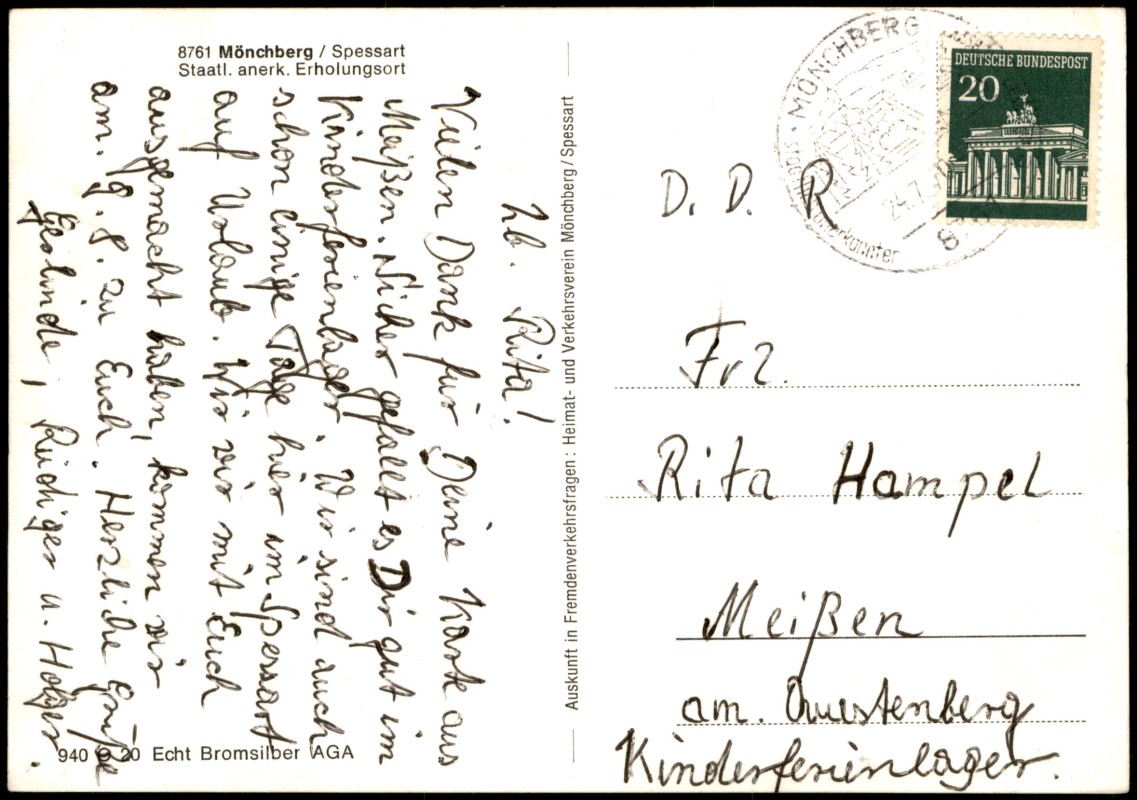 8761 Mönchberg / Spessart
Staatl. anerk. Erholungsort
Lb. Rita!
Vielen Dank für Deine Karte aus
Meißen. Sicher gefällt es Dir gut im
Kinderferienlager. Wir sind auch
schon einige Tage hier im Spessart
auf Urlaub. Wie wir mit Euch
ausgemacht haben, kommen wir
am. 9. 8. zu Euch. Herzliche Grüße
Gerlinde, Rüdiger u. Holger.
940 20 Echt Bromsilber AGA
Auskunft in Fremdenverkehrsfragen: Heimat- und Verkehrsverein Mönchberg/Spessart
MÖNCHBERG
anerkannter
24.7.
DEUTSCHE BUNDESPOST
20
D. D. R
Frl.
Rita Hampel
Meißen
am. Questenberg
Kinderferienlager.